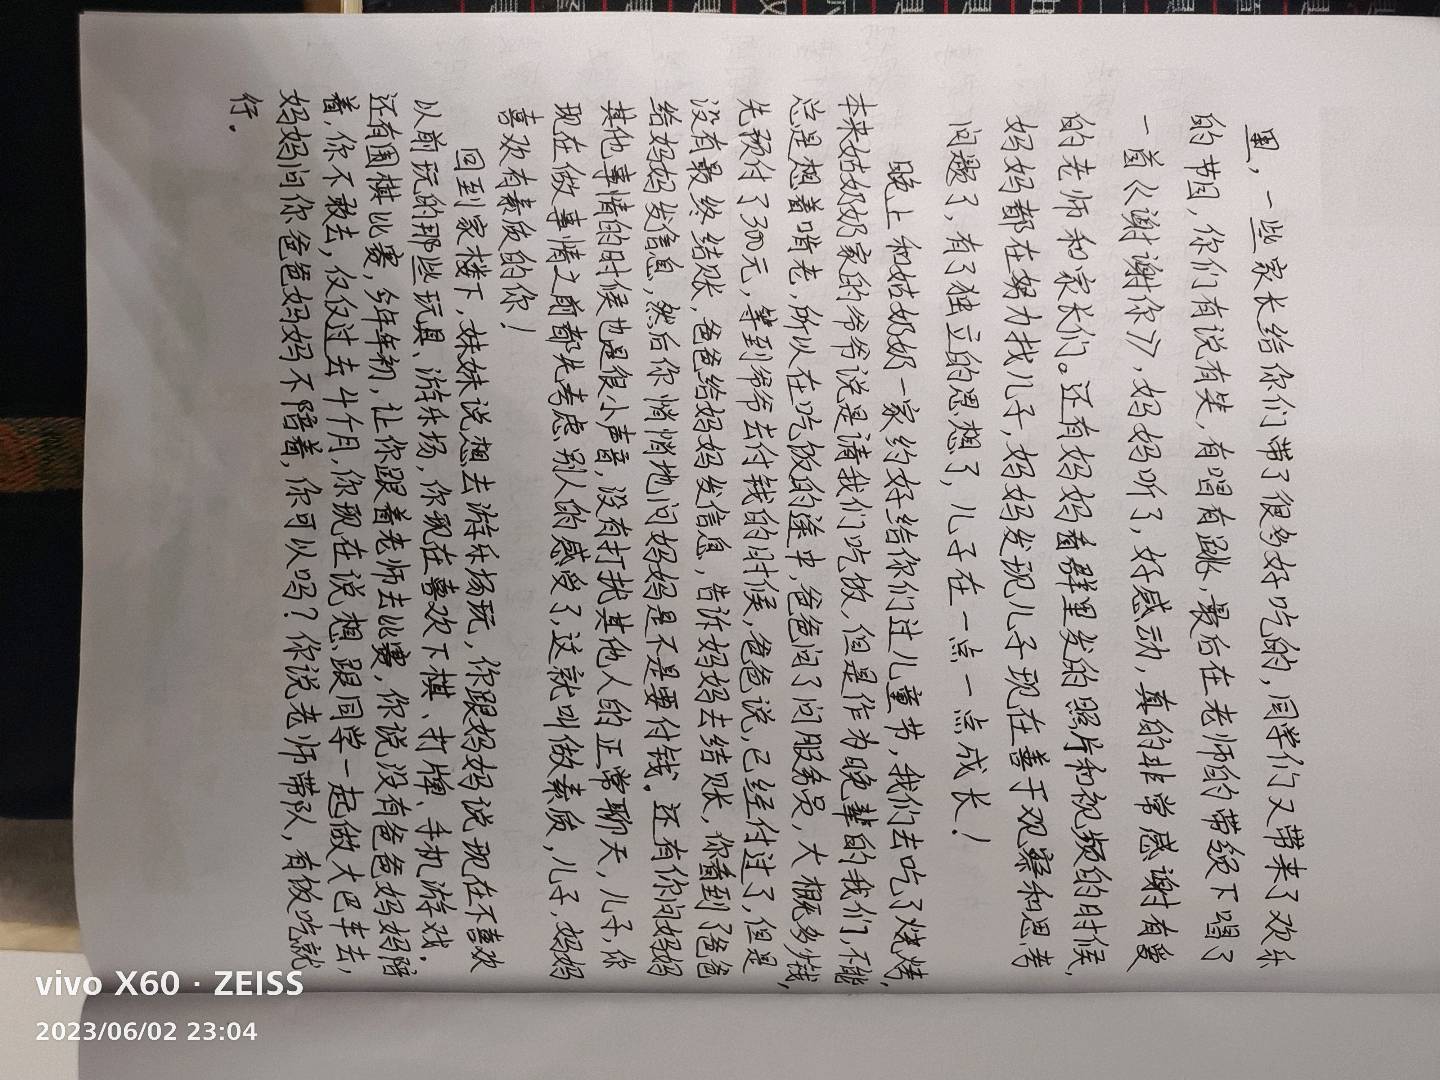 里，一些家长给你们带了很多好吃的，同学们又带来了欢乐
的节目，你们有说有笑，有唱有跳，最后在老师的带领下唱了
一首《谢谢你》，妈妈听了，好感动，真的非常感谢有爱
的老师和家长们。还有妈妈看群里发的照片和视频的时候，
妈妈都在努力找儿子，妈妈发现儿子现在善于观察和思考
问题了，有了独立的思想了，儿子在一点一点成长！
晚上和姑奶奶一家约好给你们过儿童节，我们去吃了烧烤，
本来姑奶奶家的爷爷说是请我们吃饭，但是作为晚辈的我们，不能
总是想着啃老，所以在吃饭的途中，爸爸问了问服务员，大概多少钱，
先预付了300元，等到爷爷去付钱的时候，爸爸说，已经付过了，但是
没有最终结账，爸爸给妈妈发信息，告诉妈妈去结账，你看到了爸爸
给妈妈发信息，然后你悄悄地问妈妈是不是要付钱。还有你问妈妈
其他事情的时候也是很小声音，没有打扰其他人的正常聊天，儿子，你
现在做事情之前都先考虑别人的感受了，这就叫做素质，儿子，妈妈
喜欢有素质的你！
回到家楼下，妹妹说想去游乐场玩，你跟妈妈说现在不喜欢
以前玩的那些玩具、游乐场，你现在喜欢下棋、打牌、手机游戏。
还有围棋比赛，今年年初，让你跟着老师去比赛，你说没有爸爸妈妈陪
着，你不敢去，仅仅过去4个月，你现在说想跟同学一起做大巴车去，
妈妈问你爸爸妈妈不陪着，你可以吗？你说老师带队，有饭吃就
行。
vivo X60 · ZEISS
2023/06/02 23:04